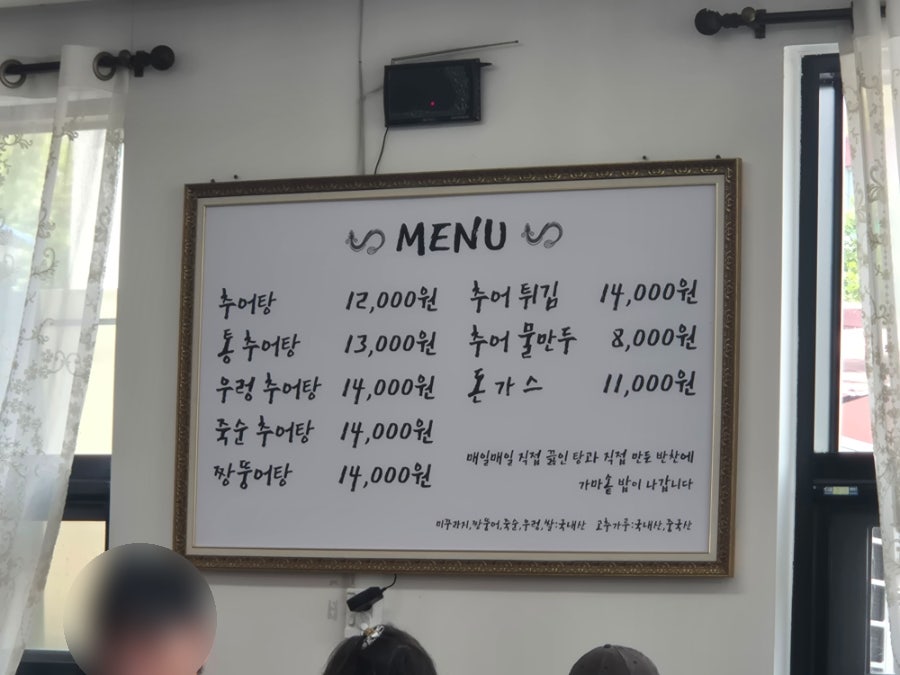 MENU
추어탕 12,000원
통 추어탕 13,000원
우렁 추어탕 14,000원
죽순 추어탕 14,000원
짱뚱어탕 14,000원
추어 튀김 14,000원
추어 물만두 8,000원
돈 가 스 11,000원
매일매일 직접 끓인 탕과 직접 만든 반찬에
가마솥 밥이 나갑니다
미꾸라지,짱뚱어,죽순,우렁,쌀:국내산 고추가루:국내산,중국산